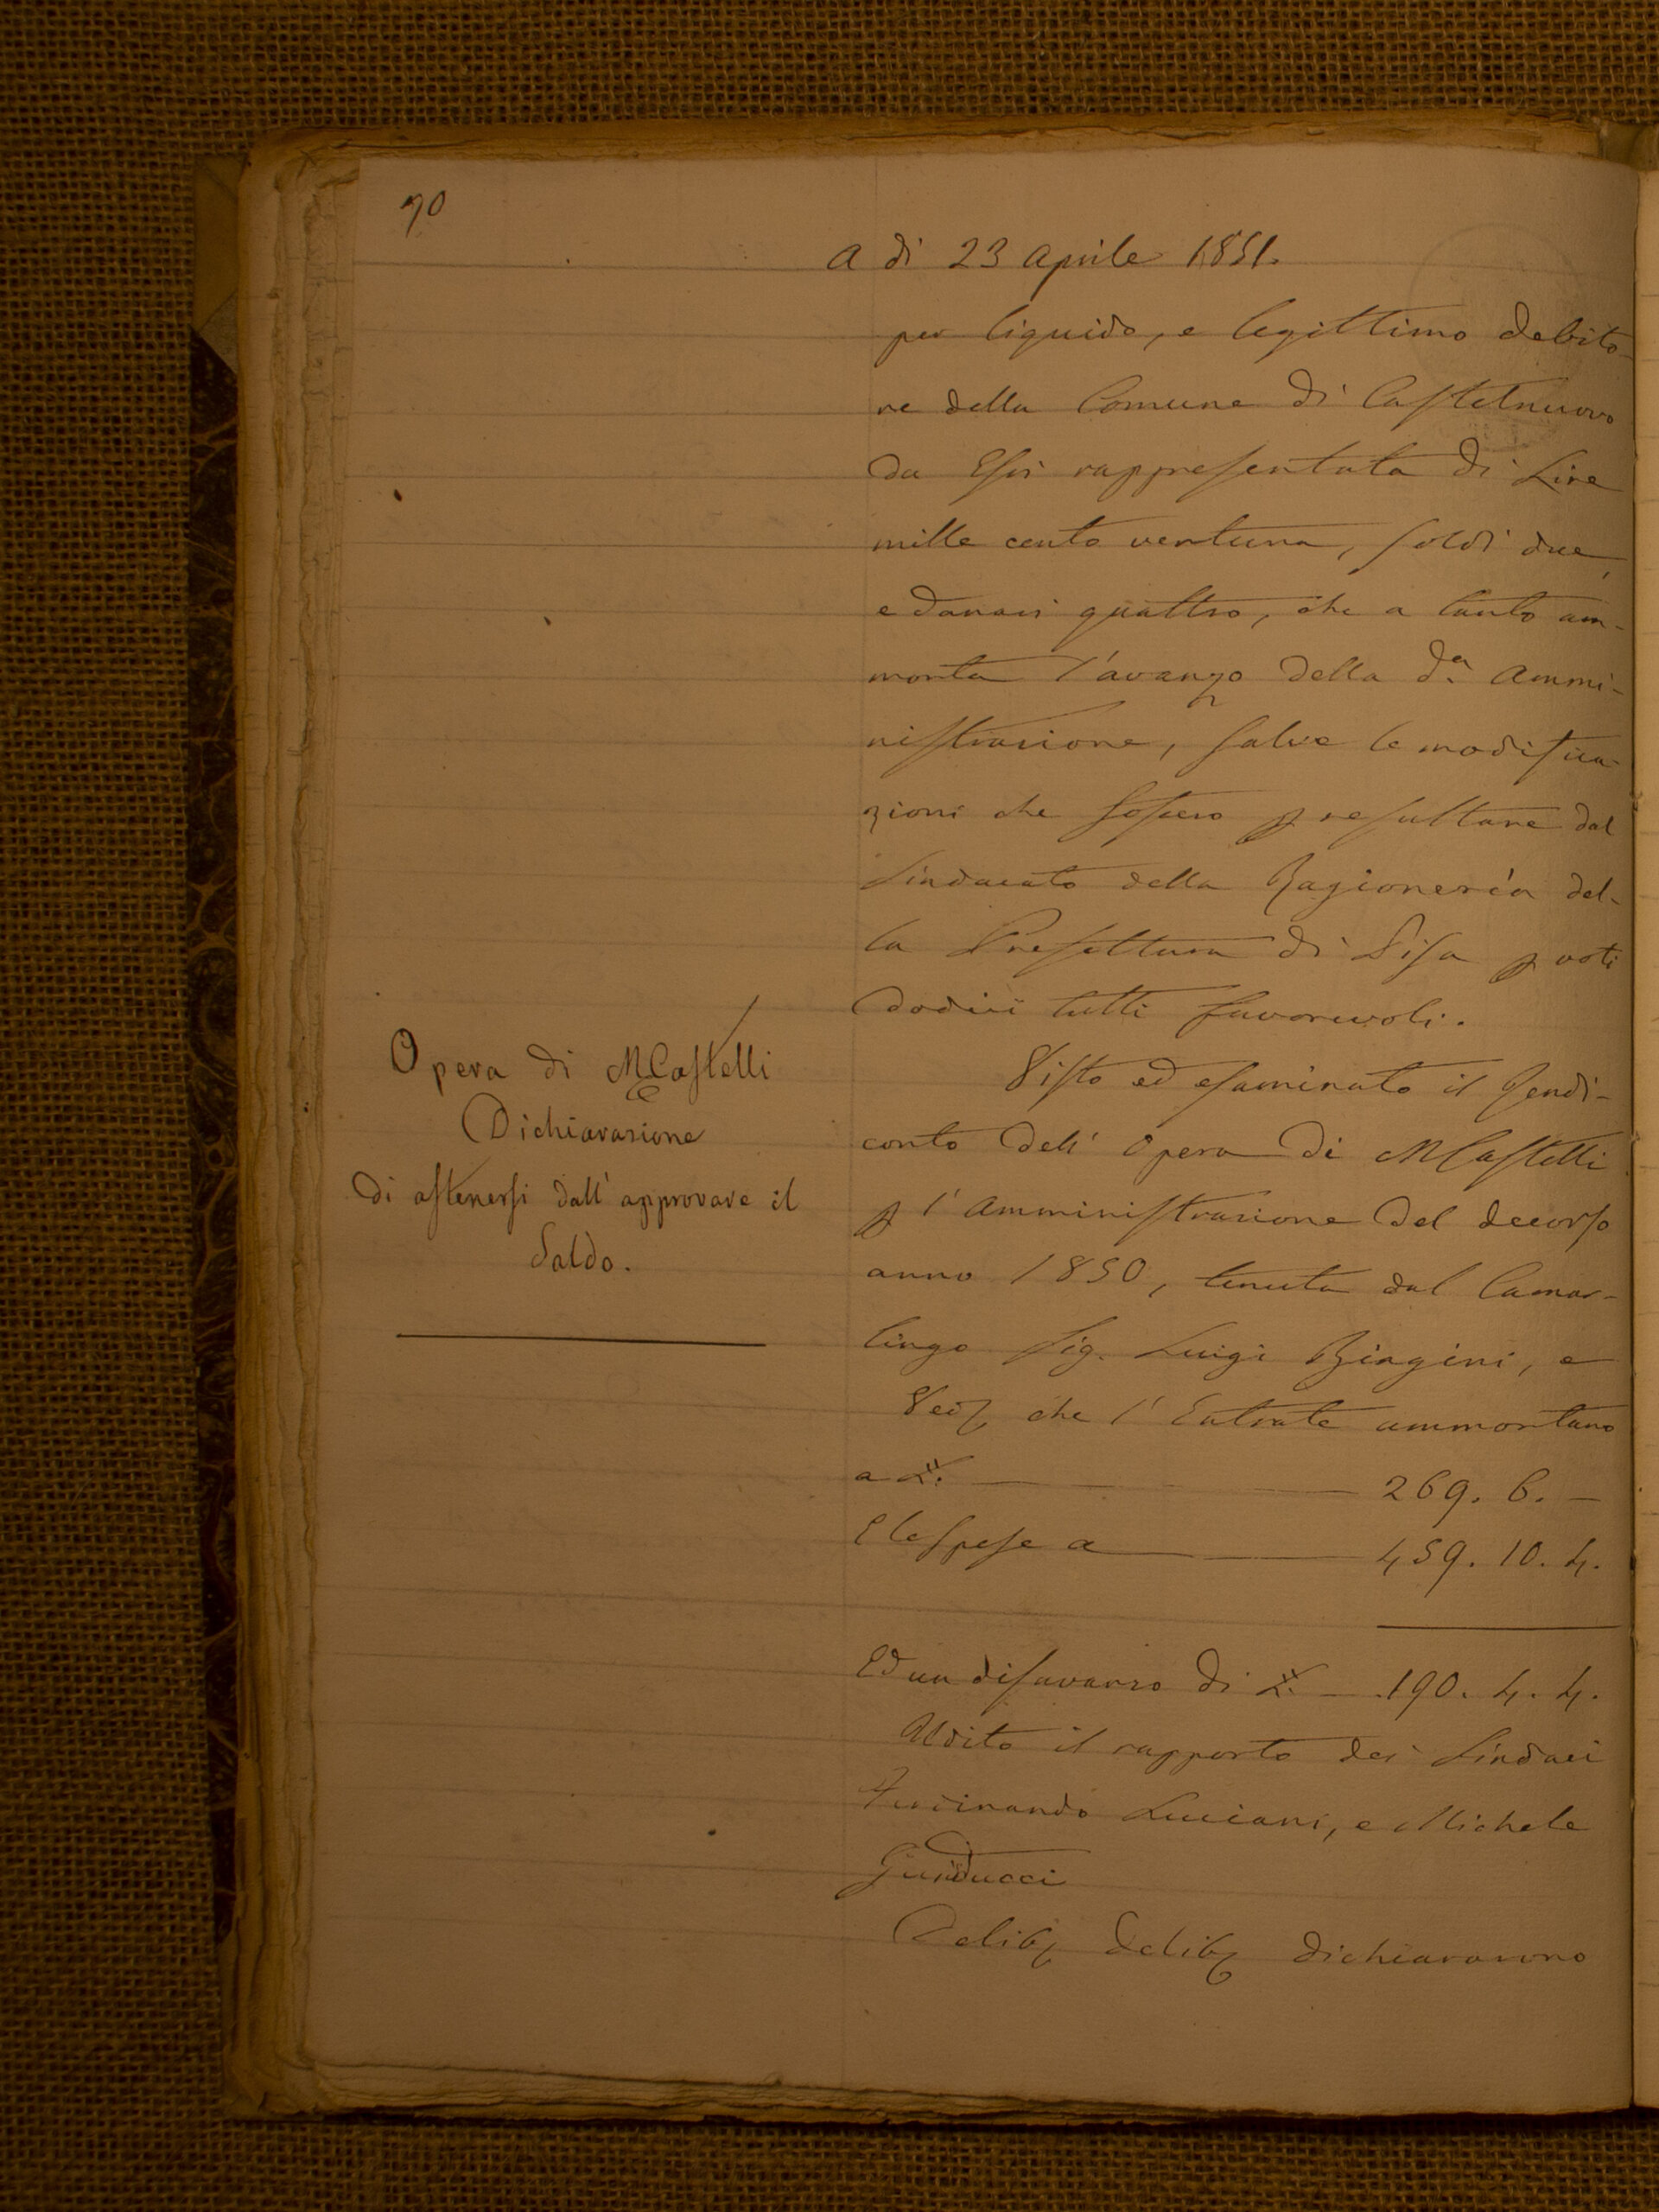 70
A dì 23 Aprile 1851.
per liquido, e legittimo debito-
re della Comune di Castelnuovo
da Essi rappresentata di Lire
mille cento ventuna, soldi due,
e danari quattro, che a tanto am-
monta l'avanzo della d.a Ammi-
nistrazione, salve le modifica-
zioni che fossero p resultare dal
Sindacato della Ragioneria del-
la Prefettura di Pisa p voti
dodici tutti favorevoli.
Opera di MCastelli
Dichiarazione
di astenersi dall'approvare il
Saldo.
Visto ed esaminato il Rendi-
conto dell'Opera di MCastelli
p l'Amministrazione del decorso
anno 1850, tenuta dal Camar-
lingo Sig. Luigi Biagini, e
che l'Entrate ammontano
a L. 269. 6. —
E le spese a 459. 10. 4.
Ed un disavanzo di L. 190. 4. 4.
Udito il rapporto dei Sindaci
Ferdinando Luciani, e Michele
Delib Delib dichiararono